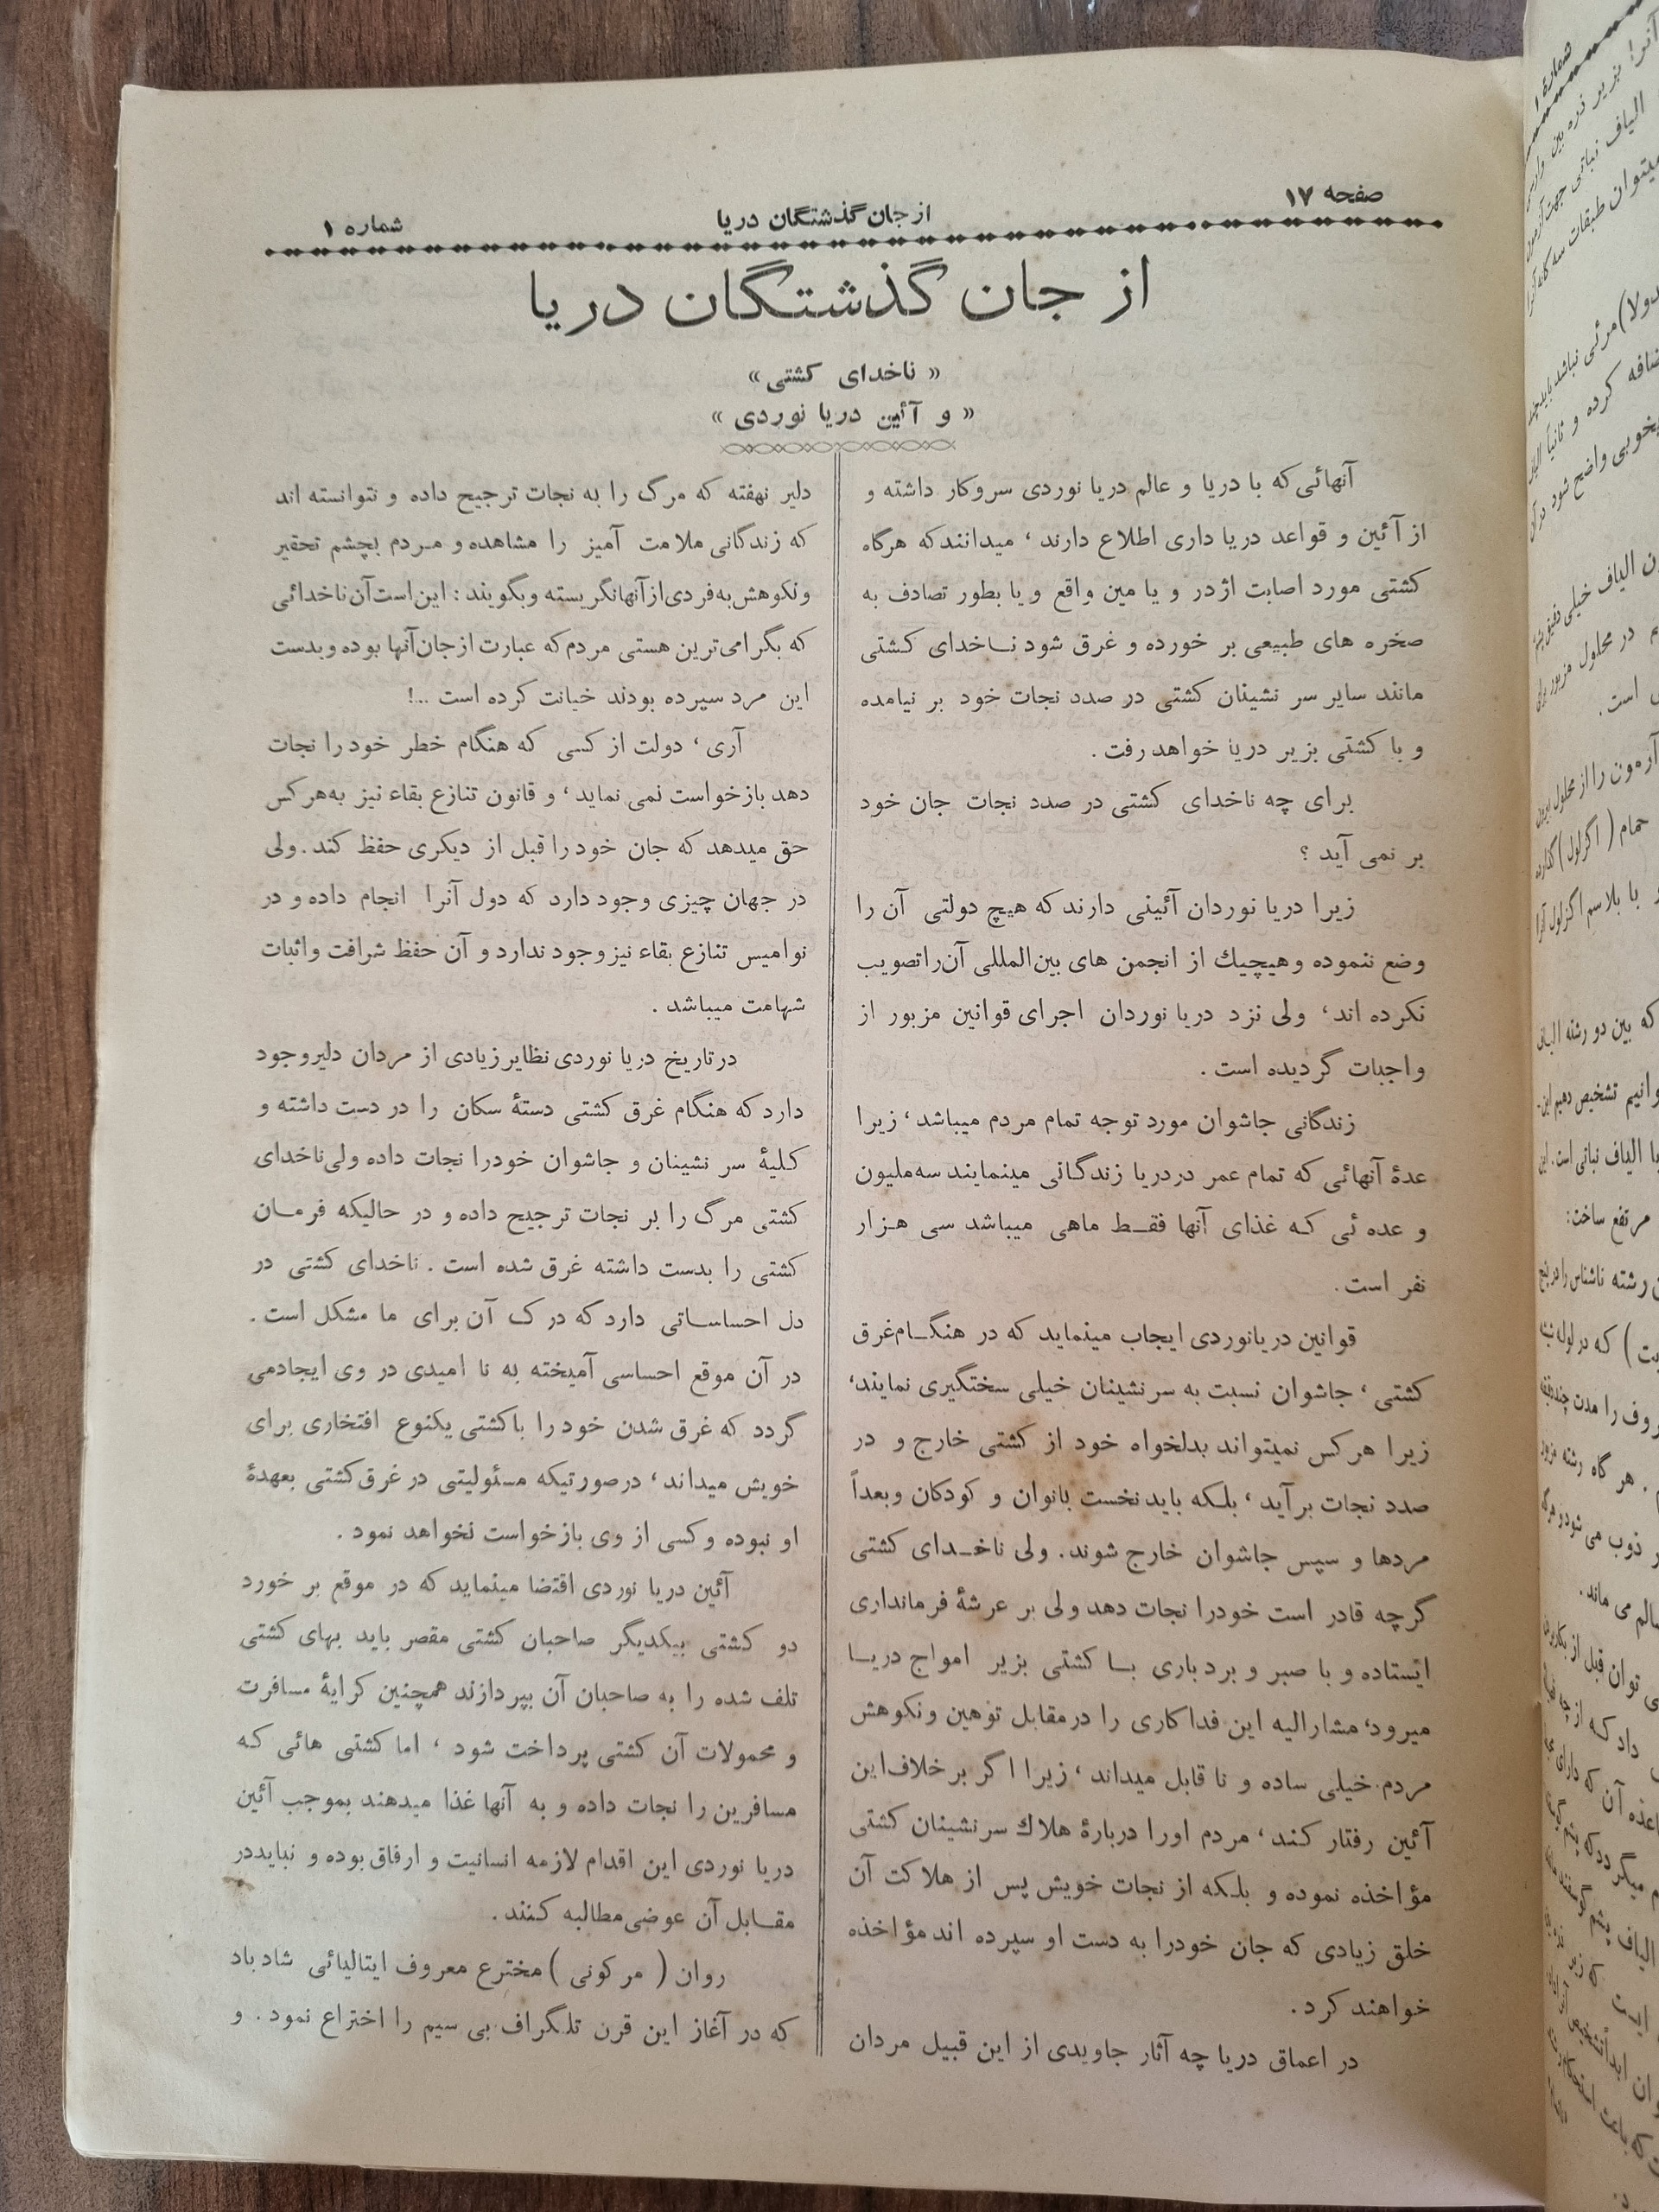 صفحه ۱۷
از جان گذشتگان دریا
شماره ۱
از جان گذشتگان دریا
« ناخدای کشتی »
« و آئین دریا نوردی »
آنهائی که با دریا و عالم دریا نوردی سروکار داشته و
از آئین و قواعد دریا داری اطلاع دارند ، میدانند که هرگاه
کشتی مورد اصابت اژدر و یا مین واقع و یا بطور تصادف به
صخره های طبیعی بر خورده و غرق شود ناخدای کشتی
مانند سایر سر نشینان کشتی در صدد نجات خود بر نیامده
و با کشتی بزیر دریا خواهد رفت .
برای چه ناخدای کشتی در صدد نجات جان خود
بر نمی آید ؟
زیرا دریا نوردان آئینی دارند که هیچ دولتی آن را
وضع ننموده و هیچیك از انجمن های بین المللی آن را تصویب
نکرده اند ، ولی نزد دریا نوردان اجرای قوانین مزبور از
واجبات گردیده است .
زندگانی جاشوان مورد توجه تمام مردم میباشد ، زیرا
عدۀ آنهائی که تمام عمر در دریا زندگانی مینمایند سه ملیون
و عده ئی که غذای آنها فقط ماهی میباشد سی هزار
نفر است .
قوانین دریانوردی ایجاب مینماید که در هنگام غرق
کشتی ، جاشوان نسبت به سرنشینان خیلی سختگیری نمایند ،
زیرا هر کس نمیتواند بدلخواه خود از کشتی خارج و در
صدد نجات برآید ، بلکه باید نخست بانوان و کودکان و بعداً
مردها و سپس جاشوان خارج شوند . ولی ناخدای کشتی
گرچه قادر است خودرا نجات دهد ولی بر عرشۀ فرمانداری
ایستاده و با صبر و بردباری با کشتی بزیر امواج دریا
میرود ، مشارالیه این فداکاری را در مقابل توهین و نکوهش
مردم خیلی ساده و نا قابل میداند ، زیرا اگر بر خلاف این
آئین رفتار کند ، مردم اورا دربارۀ هلاك سرنشینان کشتی
مؤاخذه نموده و بلکه از نجات خویش پس از هلاکت آن
خلق زیادی که جان خودرا به دست او سپرده اند مؤاخذه
خواهند کرد .
در اعماق دریا چه آثار جاویدی از این قبیل مردان
دلیر نهفته که مرگ را به نجات ترجیح داده و نتوانسته اند
که زندگانی ملامت آمیز را مشاهده و مردم بچشم تحقیر
و نکوهش به فردی از آنها نگریسته و بگویند : این است آن ناخدائی
که بگرامی ترین هستی مردم که عبارت از جان آنها بوده و بدست
این مرد سپرده بودند خیانت کرده است ...!
آری ، دولت از کسی که هنگام خطر خود را نجات
دهد بازخواست نمی نماید ، و قانون تنازع بقاء نیز به هر کس
حق میدهد که جان خود را قبل از دیگری حفظ کند . ولی
در جهان چیزی وجود دارد که دول آنرا انجام داده و در
نوامیس تنازع بقاء نیز وجود ندارد و آن حفظ شرافت و اثبات
شهامت میباشد .
در تاریخ دریا نوردی نظایر زیادی از مردان دلیر وجود
دارد که هنگام غرق کشتی دستۀ سکان را در دست داشته و
کلیۀ سر نشینان و جاشوان خودرا نجات داده ولی ناخدای
کشتی مرگ را بر نجات ترجیح داده و در حالیکه فرمان
کشتی را بدست داشته غرق شده است . ناخدای کشتی در
دل احساساتی دارد که درک آن برای ما مشکل است .
در آن موقع احساسی آمیخته به نا امیدی در وی ایجاد می
گردد که غرق شدن خود را با کشتی یکنوع افتخاری برای
خویش میداند ، در صورتیکه مسئولیتی در غرق کشتی بعهدۀ
او نبوده و کسی از وی بازخواست نخواهد نمود .
آئین دریا نوردی اقتضا مینماید که در موقع بر خورد
دو کشتی بیکدیگر صاحبان کشتی مقصر باید بهای کشتی
تلف شده را به صاحبان آن بپردازند همچنین کرایۀ مسافرت
و محمولات آن کشتی پرداخت شود ، اما کشتی هائی که
مسافرین را نجات داده و به آنها غذا میدهند بموجب آئین
دریا نوردی این اقدام لازمه انسانیت و ارفاق بوده و نباید در
مقابل آن عوضی مطالبه کنند .
روان ( مرکونی ) مخترع معروف ایتالیائی شاد باد
که در آغاز این قرن تلگراف بی سیم را اختراع نمود . و